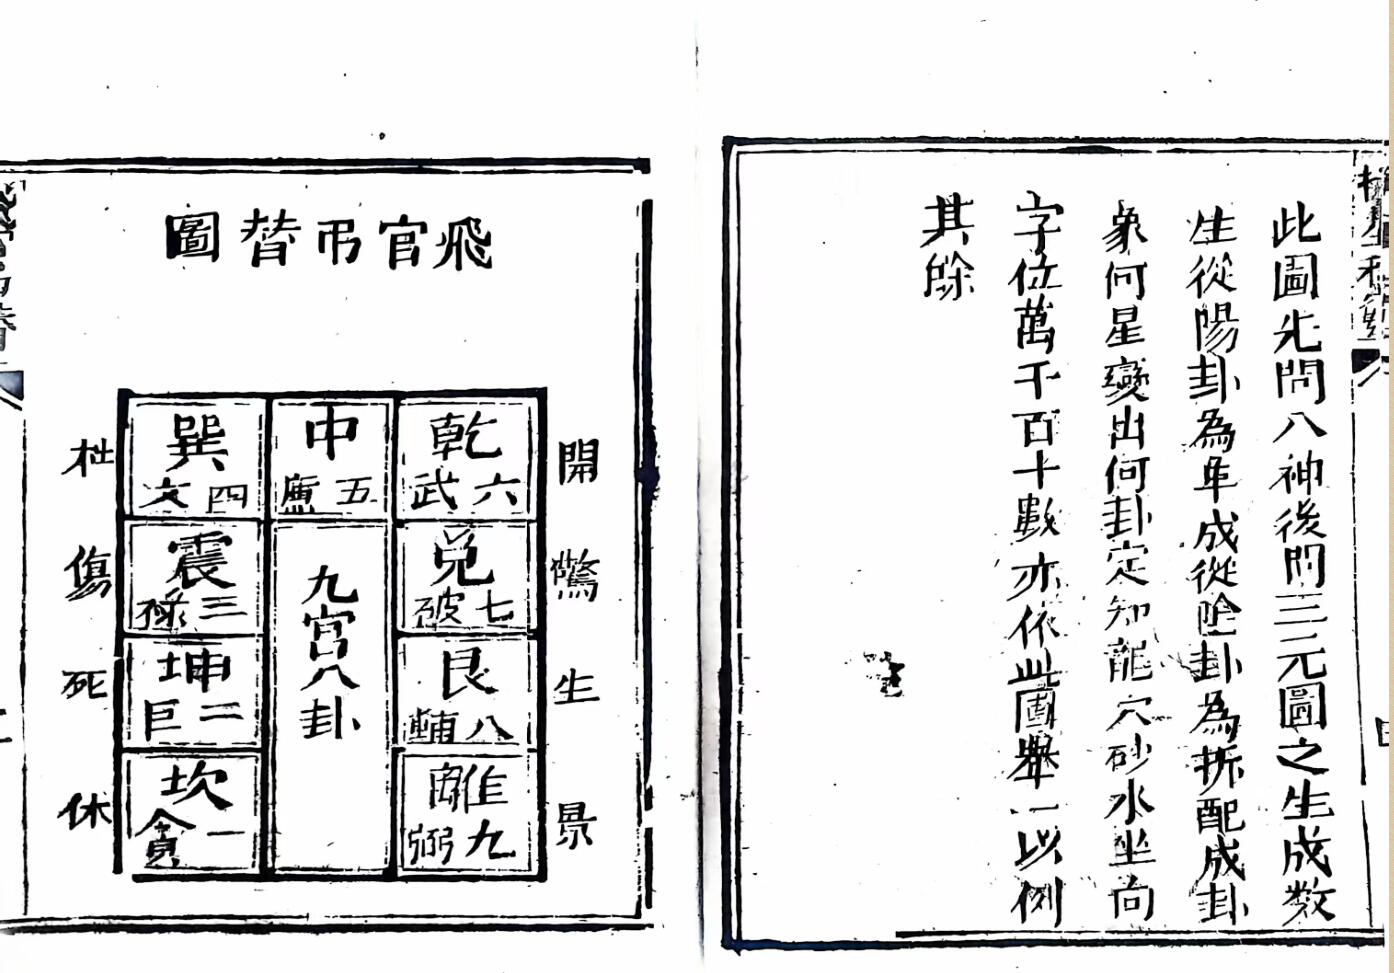 此圖先問八神後問三元圖之生成数
生從陽卦為单成從陰卦為拆配成卦
象何星變出何卦定知龍穴砂水坐向
字位萬千百十數亦依此圖舉一以例
其餘
飛官吊替圖
開
驚
生
景
乾
六武
兌
七破
艮
八輔
離
九弼
中
五廉
九宮八卦
巽
四文
震
三祿
坤
二巨
坎
一貪
杜
傷
死
休